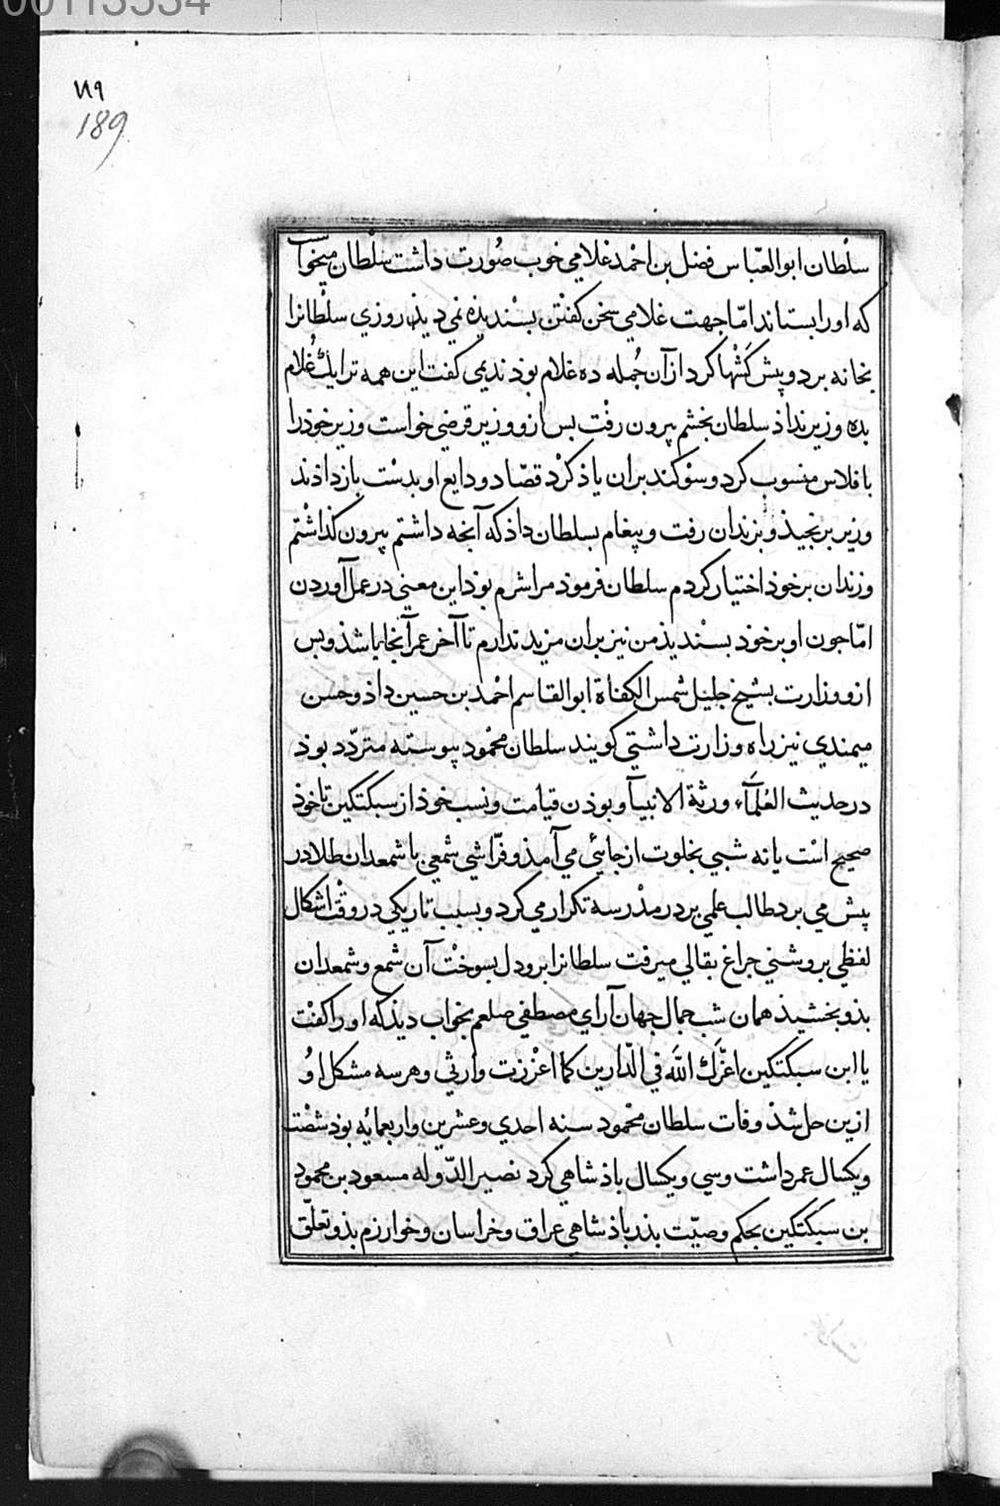 00113534
۱۸۹
189
سلطان ابوالعبّاس فضل بن احمد غلامی خوب صُورت داشت سلطان میخواست
که اورا بستاند امّا جهت غلامی سخن کفتن بسندیده نمی دیذ روزی سلطانرا
بخانه برد و پیش کشها کرد از آن جُمله ده غلام بوذ ندیمی کفت این همه ترا یك غُلام
بده وزیر نداذ سلطان بخشم بیرون رفت بس ازو وزیر قرضی خواست وزیر خوذرا
بافلاس منسوب کرد و سوکند بران یاذ کرد قصّاد ودایع او بدست باز داذند
وزیر برنجیذ و بزندان رفت و پیغام بسلطان داذ که آنجه داشتم بیرون کذاشتم
و زندان بر خوذ اختیار کردم سلطان فرموذ مرا شرم بوذ این معنی در عمل آوردن
امّا جون او بر خوذ بسندیذ من نیز بران مزید ندارم تا آخر عمر آنجا باشذ و بس
ازو وزارت بشیخ جلیل شمس الکفاة ابوالقاسم احمد بن حسین داذ و حسن
میمندی نیز راه وزارت داشتی کویند سلطان محمود پیوسته متردّد بوذ
در حدیث العُلمآء ورثة الانبیآ و بوذن قیامت و نسب خوذ از سبکتکین تا خوذ
صحیح است یا نه شبی بخلوت از جائی می آمذ و فرّاشی شمعی با شمعدان طلا در
پیش می برد طالب علمی بر در مدرسه تکرار می کرد و بسبب تاریکی در وقت اشکال
لفظی بروشنی جراغ بقالی میرفت سلطانرا برو دل بسوخت آن شمع و شمعدان
بذو بخشیذ همان شب جمال جهان آرای مصطفی صلعم بخواب دیذ که اورا کفت
یا ابن سبکتکین اعزّك الله فی الدّارین کما اعززت وارثی و هر سه مشکل او
ازین حل شذ وفات سلطان محمود سنه احدی و عشرین و اربعمایه بوذ شصت
و یکسال عمر داشت و سی و یکسال باذشاهی کرد نصیر الدّوله مسعود بن محمود
بن سبکتکین بحکم وصیّت بذر باذشاهی عراق و خراسان و خوارزم بذو تعلّق